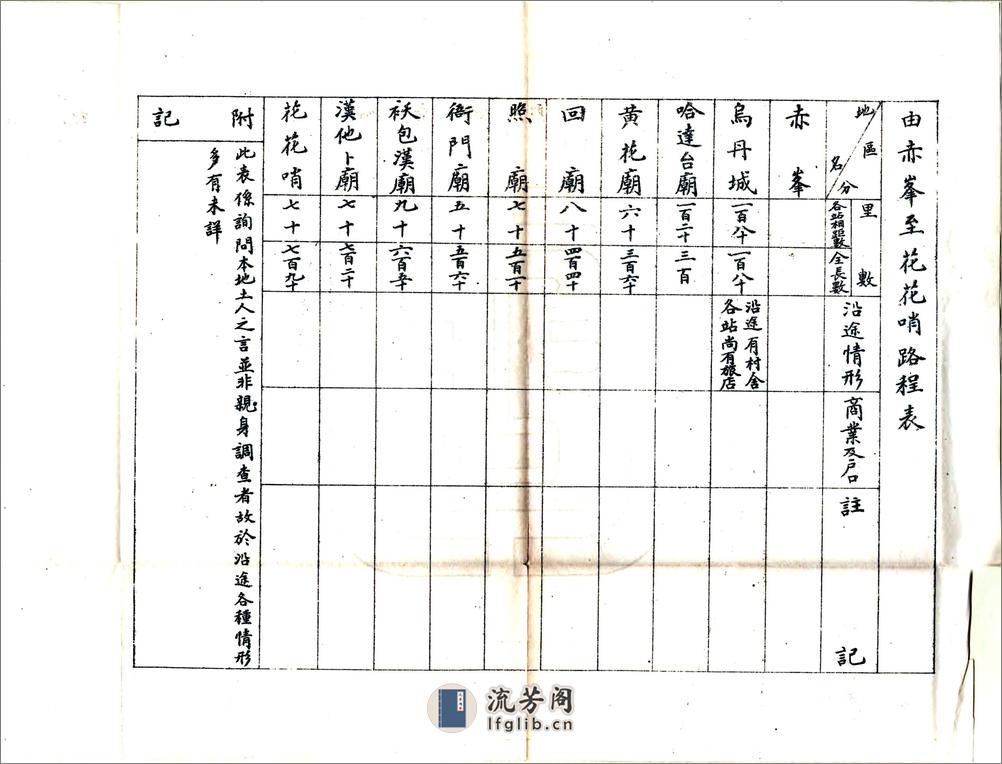 由赤峯至花花哨路程表
地區
名分
里數
各站相距數
全長數
沿途情形
商業及戶口
註記
赤峯
烏丹城
一百八十
一百八十
沿途有村舍
各站尚有旅店
哈達台廟
一百二十
三百
黄花廟
六十
三百六十
回廟
八十
四百四十
照廟
七十
五百一十
衙門廟
五十
五百六十
袄包漢廟
九十
六百五十
漢他卜廟
七十
七百二十
花花哨
七十
七百九十
附記
此表係詢問本地土人之言並非親身調查者故於沿途各種情形
多有未詳
流芳阁
lfglib.cn